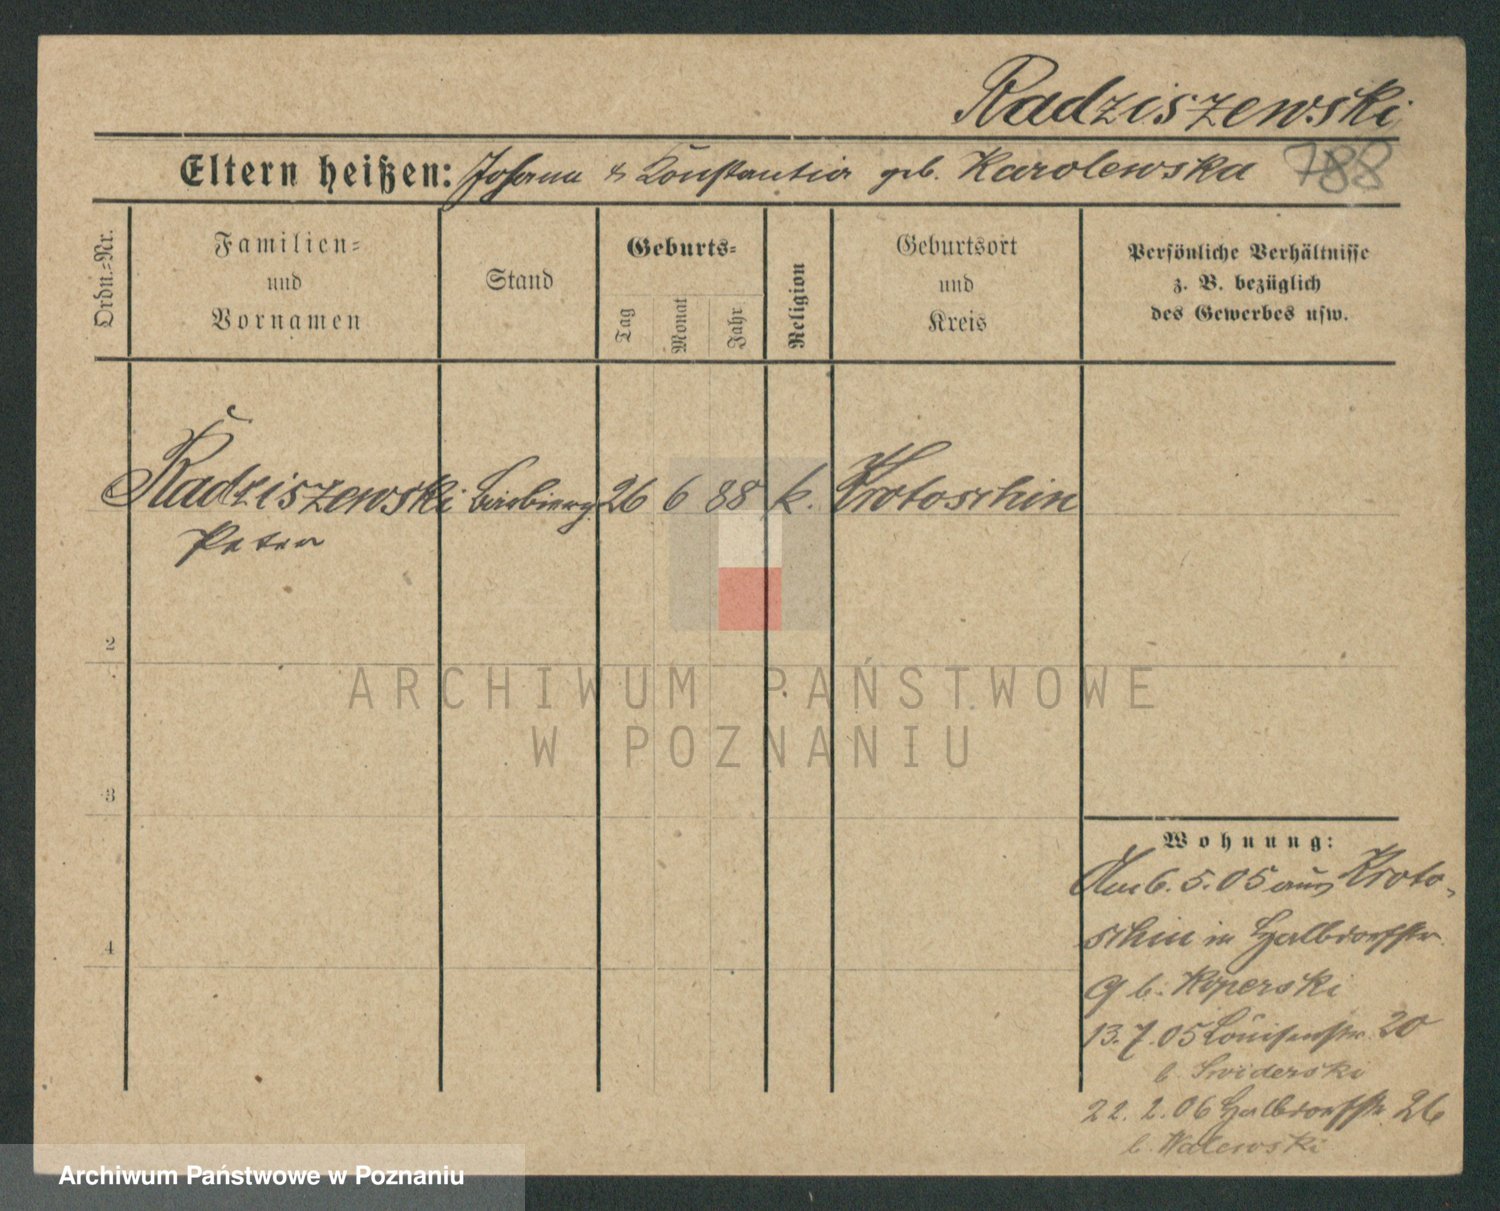 Radziszewski
Eltern heißen: Johann & Konstantia geb. Karolewska 788
Ordn.=Nr.
Familien=
und
Vornamen
Stand
Geburts=
Tag
Monat
Jahr
Religion
Geburtsort
und
Kreis
Persönliche Verhältnisse
z. B. bezüglich
des Gewerbes usw.
Radziszewski 26 6 88 k. Krotoschin
Peter
2
ARCHIWUM PAŃSTWOWE
W POZNANIU
3
4
Wohnung:
Am 6. 5. 05 aus Kroto-
schin in Halbdorfstr.
9 b. Koperski
13. 7. 05 Louisenstr. 20
b. Swiderski
22. 2. 06 Halbdorfstr. 26
b. Walewski
Archiwum Państwowe w Poznaniu